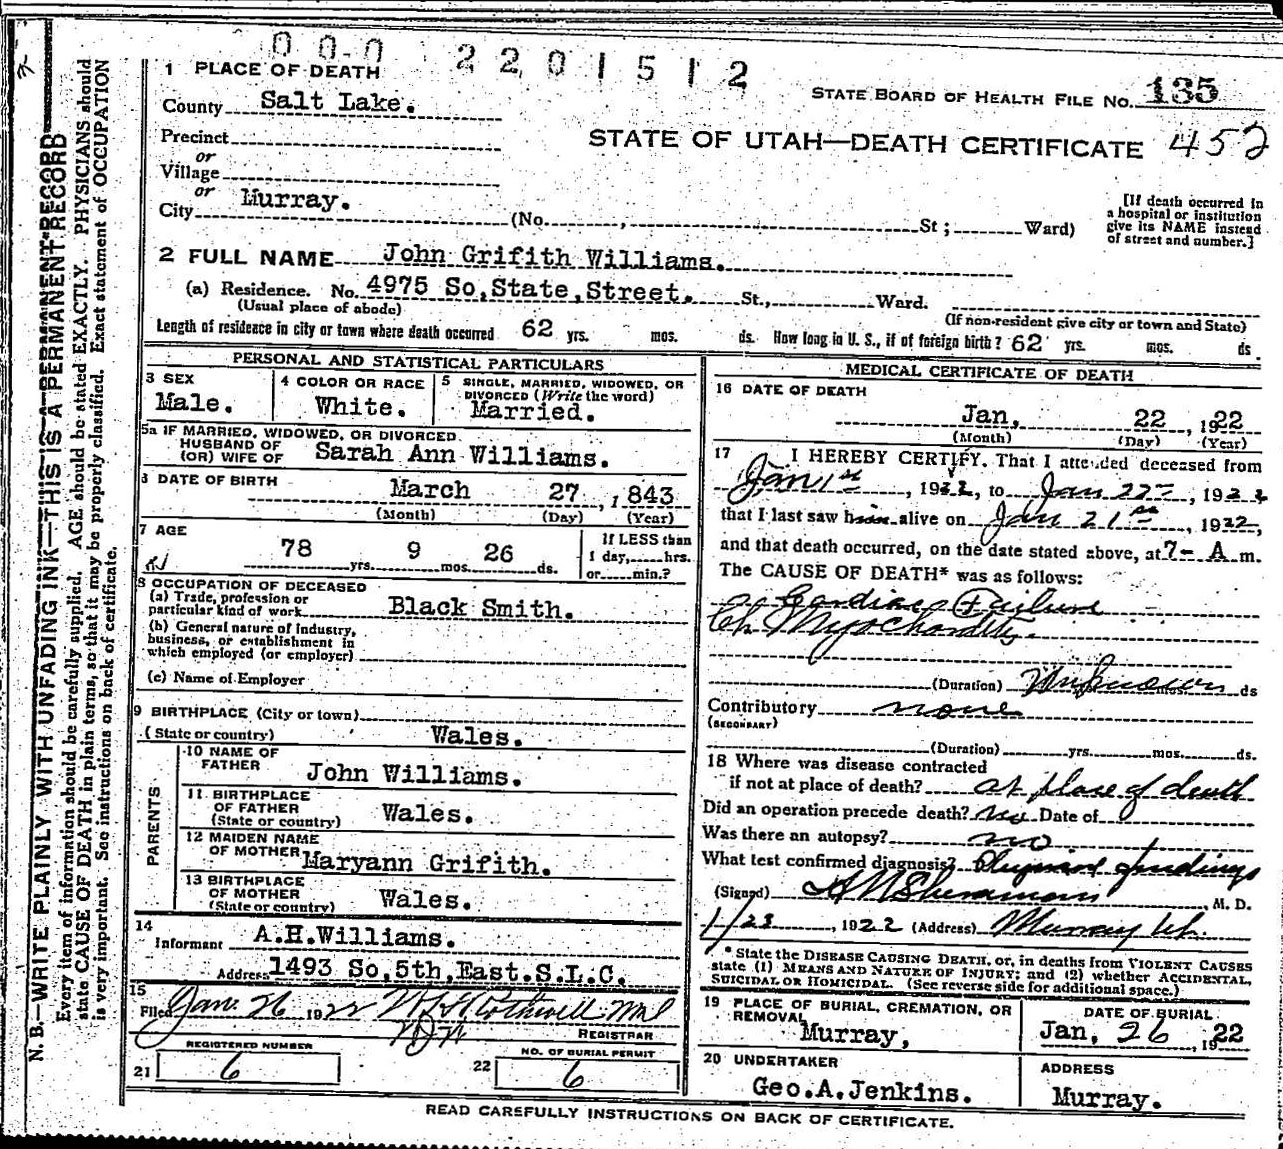 000 2201512
1 PLACE OF DEATH
STATE BOARD OF HEALTH FILE NO. 135
County Salt Lake.
STATE OF UTAH—DEATH CERTIFICATE 452
Precinct
or
Village
or
City Murray. (No. , St ; Ward)
[If death occurred in
a hospital or institution
give its NAME instead
of street and number.]
2 FULL NAME John Grifith Williams.
(a) Residence. No. 4975 So,State,Street. St., Ward.
(Usual place of abode)
(If non-resident give city or town and State)
Length of residence in city or town where death occurred 62 yrs. mos. ds. How long in U. S., if of foreign birth? 62 yrs. mos. ds.
PERSONAL AND STATISTICAL PARTICULARS
3 SEX
Male.
4 COLOR OR RACE
White.
5 SINGLE, MARRIED, WIDOWED, OR
DIVORCED (Write the word)
Married.
5a IF MARRIED, WIDOWED, OR DIVORCED
HUSBAND OF
(OR) WIFE OF Sarah Ann Williams.
6 DATE OF BIRTH
March 27 , 1843
(Month) (Day) (Year)
7 AGE
78 yrs. 9 mos. 26 ds.
If LESS than
1 day, hrs.
or min.?
8 OCCUPATION OF DECEASED
(a) Trade, profession or
particular kind of work Black Smith.
(b) General nature of Industry,
business, or establishment in
which employed (or employer)
(c) Name of Employer
9 BIRTHPLACE (City or town)
(State or country) Wales.
PARENTS
10 NAME OF
FATHER John Williams.
11 BIRTHPLACE
OF FATHER
(State or country) Wales.
12 MAIDEN NAME
OF MOTHER Maryann Grifith.
13 BIRTHPLACE
OF MOTHER
(State or country) Wales.
14
Informant A.H.Williams.
Address 1493 So,5th,East.S.L.C.
15
Filed Jan. 26 1922
REGISTRAR
REGISTERED NUMBER
21 6
NO. OF BURIAL PERMIT
22 6
MEDICAL CERTIFICATE OF DEATH
16 DATE OF DEATH
Jan, 22 , 1922
(Month) (Day) (Year)
17 I HEREBY CERTIFY. That I attended deceased from
Jan 1st , 1922, to Jan 22nd , 1922
that I last saw him alive on Jan 21st , 1922,
and that death occurred, on the date stated above, at 7- A m.
The CAUSE OF DEATH* was as follows:
Cardiac Failure
Ch Myochorditis.
(Duration) Unknown ds
Contributory none
(SECONDARY)
(Duration) yrs. mos. ds.
18 Where was disease contracted
if not at place of death? at place of death
Did an operation precede death? no Date of
Was there an autopsy? no.
What test confirmed diagnosis? findings
(Signed) , M. D.
1/23 , 1922 (Address) Murray Ut.
* State the DISEASE CAUSING DEATH, or, in deaths from VIOLENT CAUSES
state (1) MEANS AND NATURE OF INJURY; and (2) whether ACCIDENTAL,
SUICIDAL OR HOMICIDAL. (See reverse side for additional space.)
19 PLACE OF BURIAL, CREMATION, OR
REMOVAL
Murray,
DATE OF BURIAL
Jan, 26 , 1922
20 UNDERTAKER
Geo.A.Jenkins.
ADDRESS
Murray.
READ CAREFULLY INSTRUCTIONS ON BACK OF CERTIFICATE.
N. B.—WRITE PLAINLY WITH UNFADING INK—THIS IS A PERMANENT RECORD
Every item of information should be carefully supplied. AGE should be stated EXACTLY. PHYSICIANS should
state CAUSE OF DEATH in plain terms, so that it may be properly classified. Exact statement of OCCUPATION
is very important. See instructions on back of certificate.